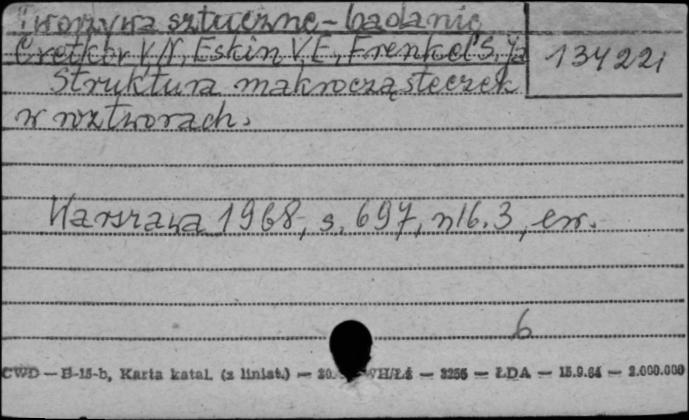 Tworzywa sztuczne - badanie
Cvetkov V.N., Eskin V.E., Frenkel' S. Ja
134221
Struktura makrocząsteczek
w roztworach.
Warszawa 1968, s. 697, nlb. 3, err.
6
CWD — H-15-b, Karta katal. (z liniat.) — WH/Łż — 3255 — ŁDA — 15.9.64 — 2.000.000